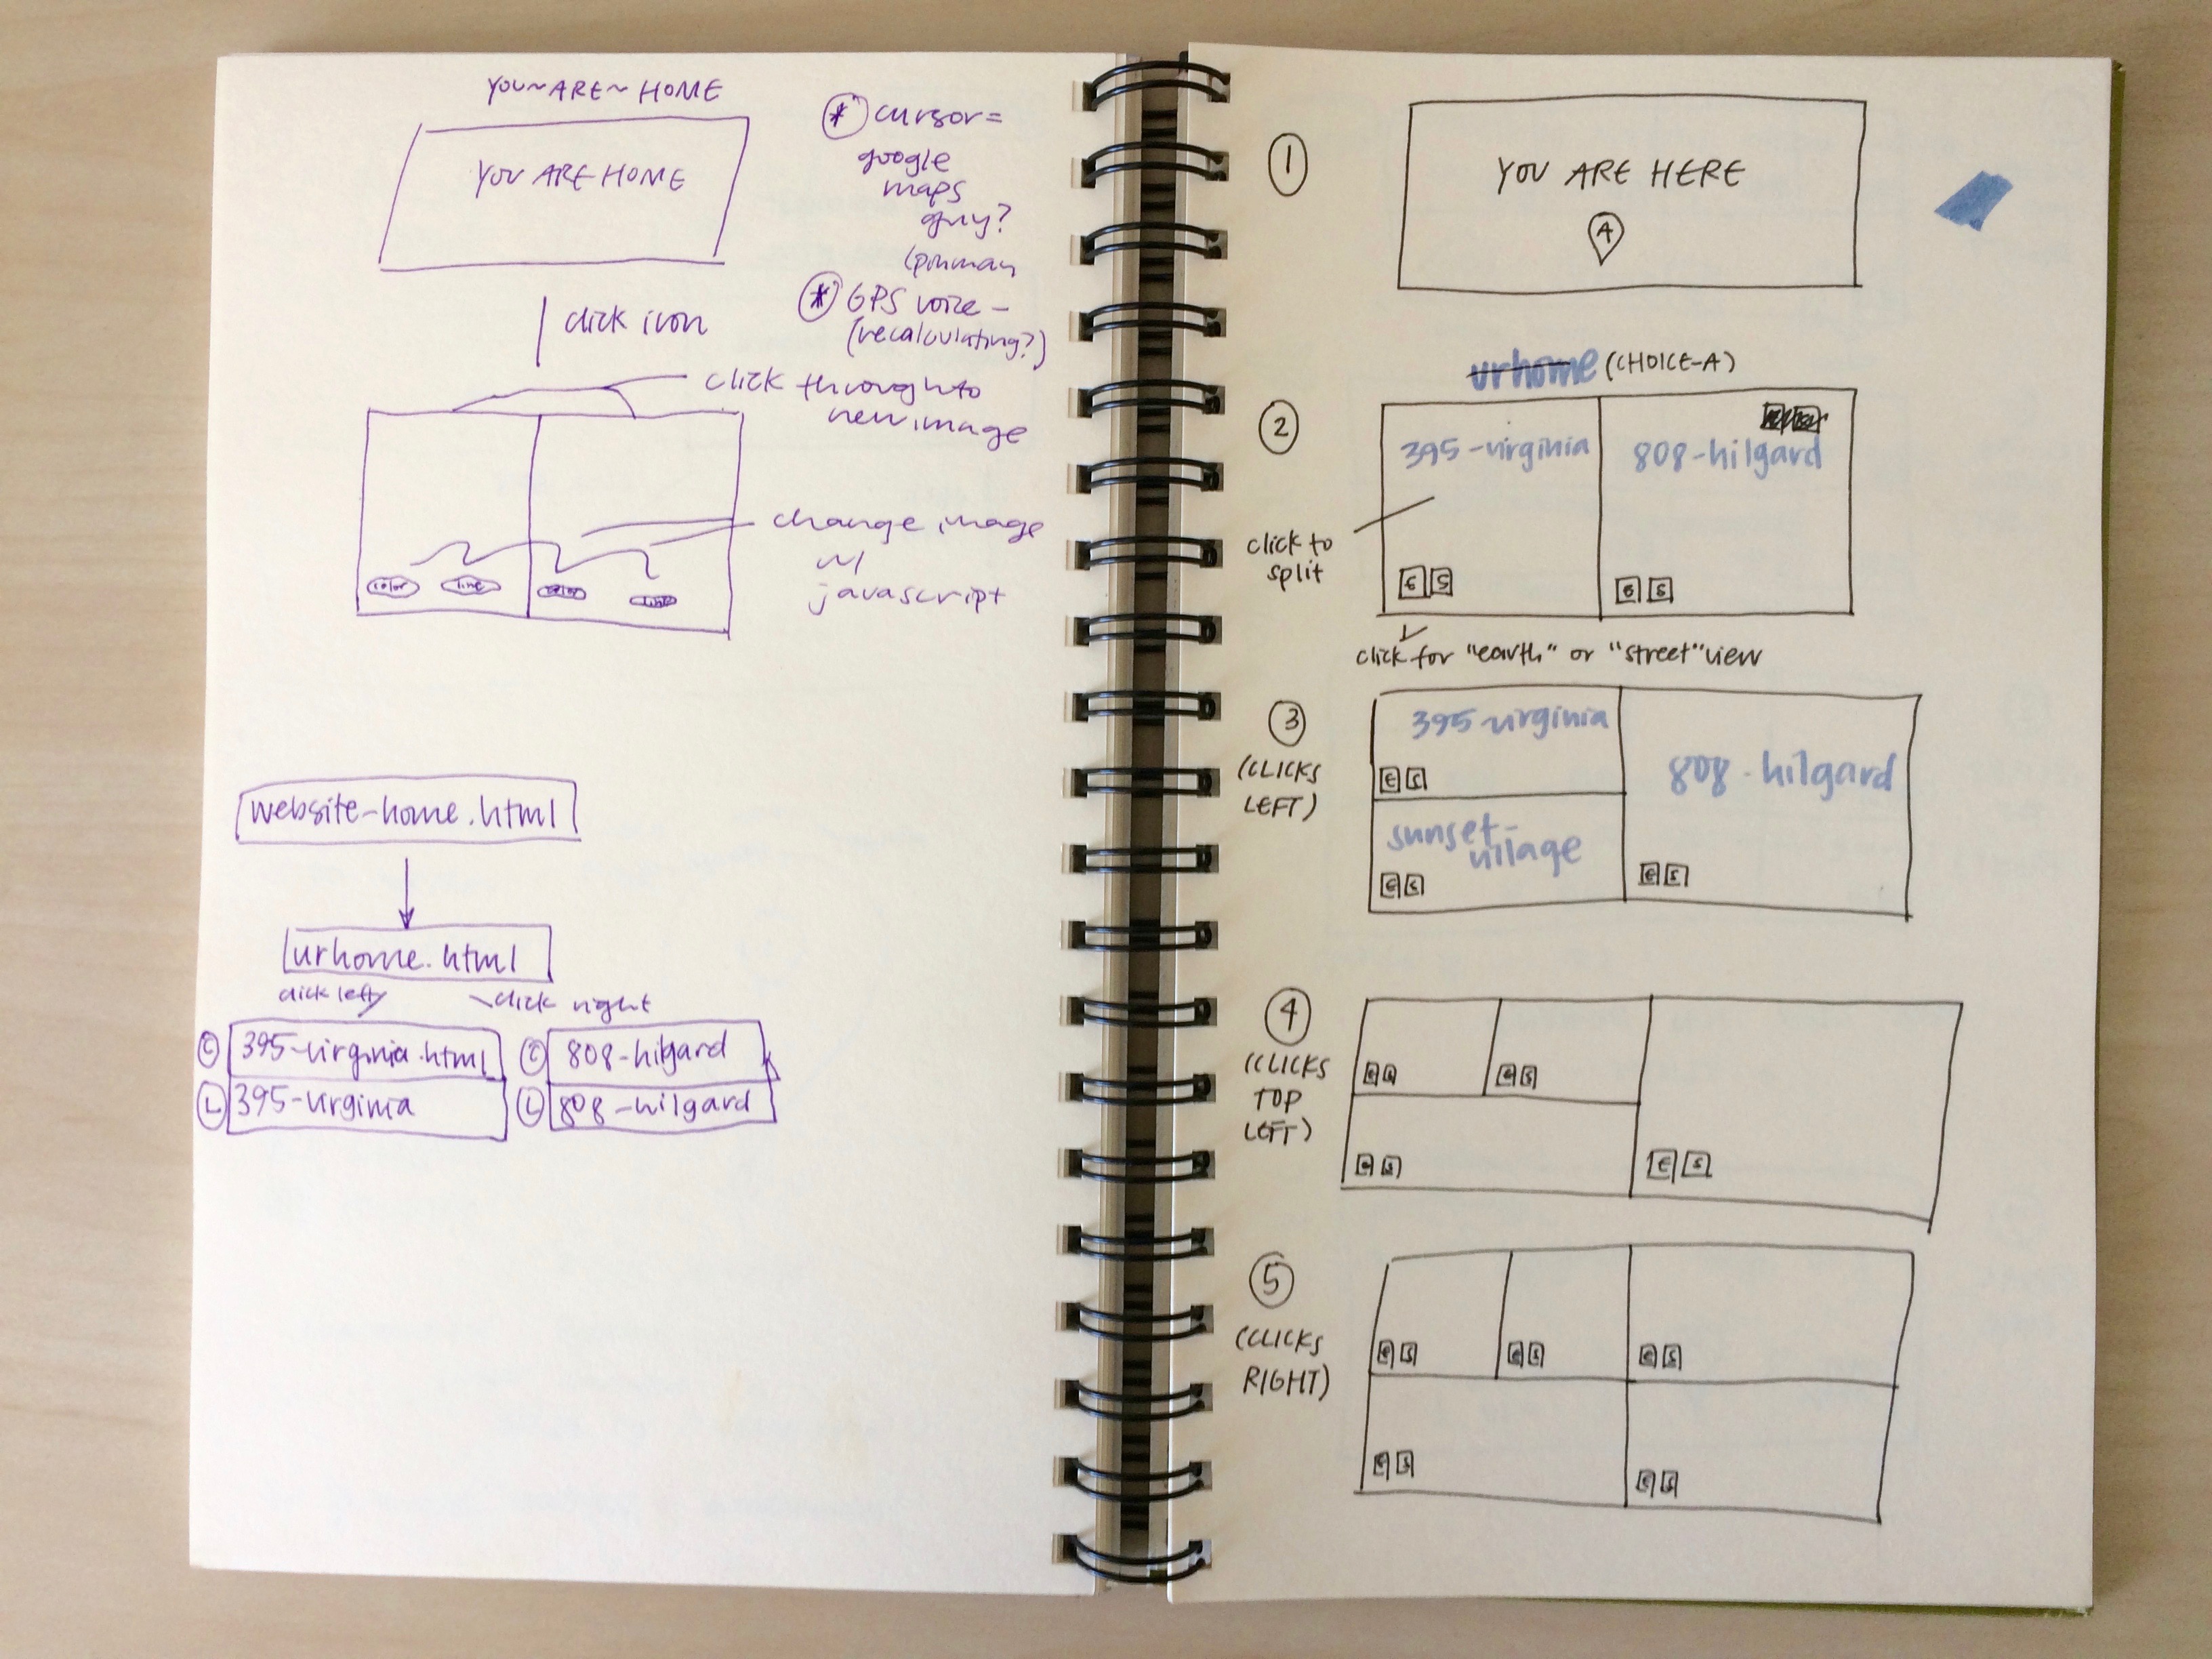 YOU~ARE~HOME
YOU ARE HOME
* cursor =
google
maps
guy?
* GPS voice –
(recalculating?)
click icon
click through to
new image
change image
w/
javascript
color
line
website-home.html
urhome.html
click left
click right
C 395-virginia.html
C 808-hilgard
L 395-virginia
L 808-hilgard
1
YOU ARE HERE
A
urhome (CHOICE-A)
2
395-virginia
808-hilgard
click to
split
E S
E S
click for "earth" or "street" view
3
(CLICKS
LEFT)
395-virginia
808-hilgard
E S
sunset-
village
E S
E S
4
(CLICKS
TOP
LEFT)
E S
E S
E S
E S
5
(CLICKS
RIGHT)
E S
E S
E S
E S
E S